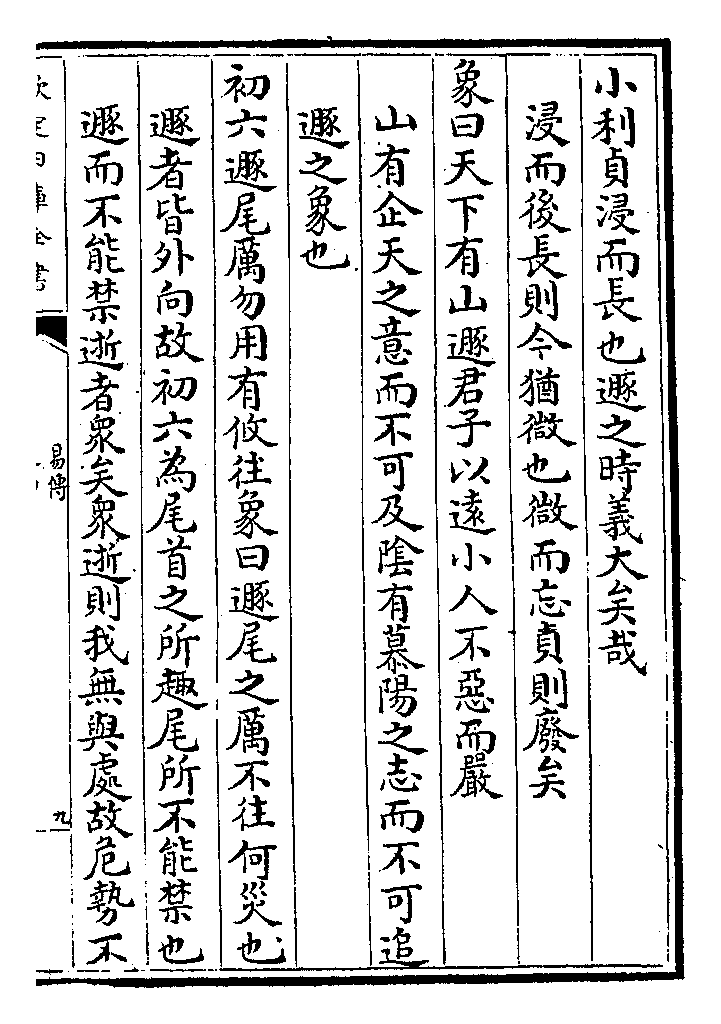 小利貞浸而長也遯之時義大矣哉
浸而後長則今猶微也微而忘貞則廢矣
象曰天下有山遯君子以遠小人不惡而嚴
山有企天之意而不可及隂有慕陽之志而不可追
遯之象也
初六遯尾厲勿用有攸往象曰遯尾之厲不往何災也
遯者皆外向故初六為尾首之所趣尾所不能禁也
遯而不能禁逝者衆矣衆逝則我無與處故危勢不
欽定四庫全書
易傳
九